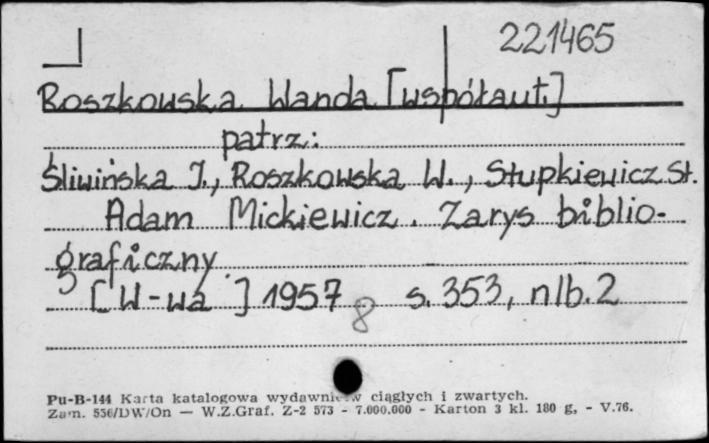 221465
Roszkowska Wanda [współaut.]
patrz:
Śliwińska I., Roszkowska W., Słupkiewicz St.
Adam Mickiewicz. Zarys biblio-
graficzny
[W-wa] 1957 8 s. 353, nlb. 2
Pu-B-144 Karta katalogowa wydawnictw ciągłych i zwartych.
Zam. 556/DW/On — W.Z.Graf. Z-2 573 - 7.000.000 - Karton 3 kl. 180 g, - V.76.